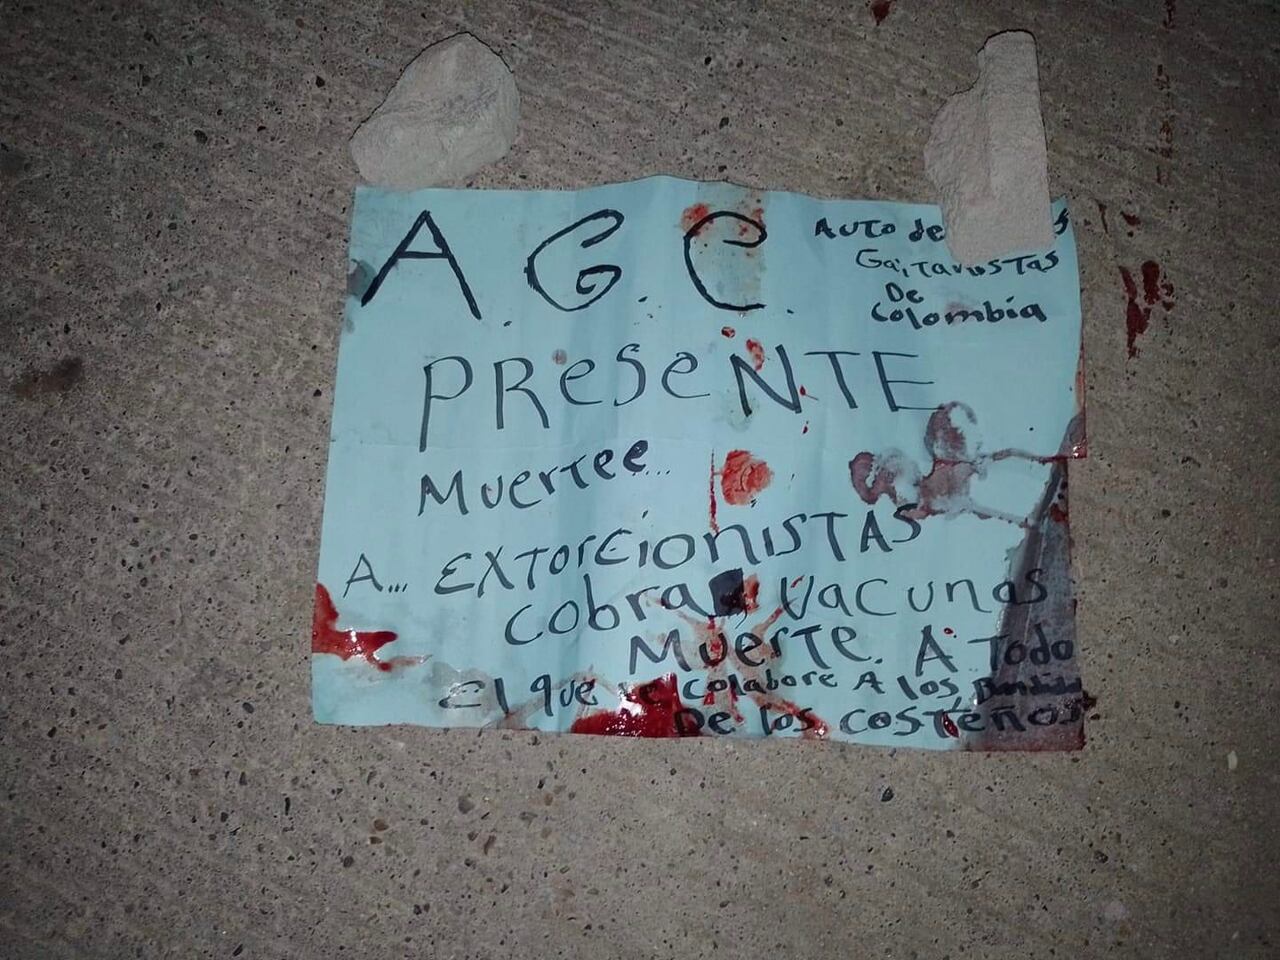 A. G. C.
AUTO de s
Gaitanistas
De
Colombia
PRESeNTE
Muertee...
A... EXTORCIONISTAS
cobra Vacunas
Muerte. A Todo
El que le colabore A los Bandidos
De los COSTEÑOS